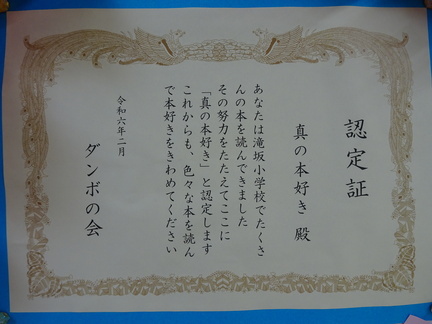 認定証
真の本好き 殿
あなたは滝坂小学校でたくさ
んの本を読んできました
その努力をたたえてここに
「真の本好き」と認定します
これからも、色々な本を読ん
で本好きをきわめてください
令和六年二月
ダンボの会